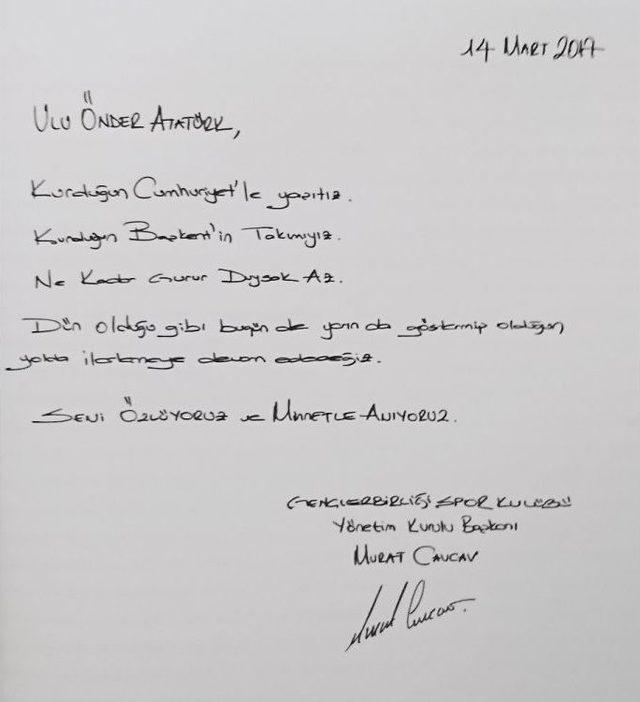 14 MART 2017
ULU ÖNDER ATATÜRK,
Kurduğun Cumhuriyet'le yaşıtız.
Kurduğun Başkent'in Takımıyız.
Ne Kadar Gurur Duysak Az.
Dün olduğu gibi bugün de yarın da göstermiş olduğun
yolda ilerlemeye devam edeceğiz.
SENİ ÖZLÜYORUZ ve MİNNETLE ANIYORUZ.
GENÇLERBİRLİĞİ SPOR KULÜBÜ
Yönetim Kurulu Başkanı
MURAT CAVCAV
Murat Cavcav